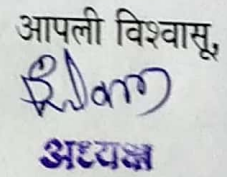 आपली विश्वासू,
अध्यक्ष